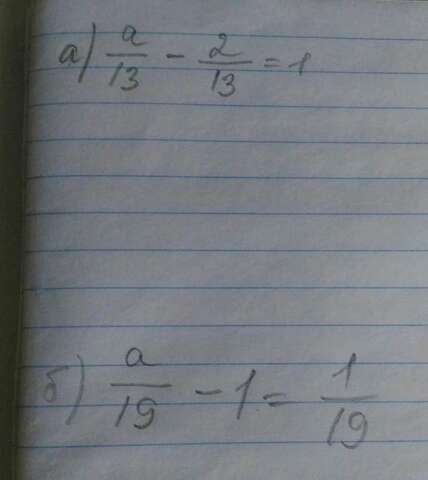 а) a/13 - 2/13 = 1
б) a/19 - 1 = 1/19